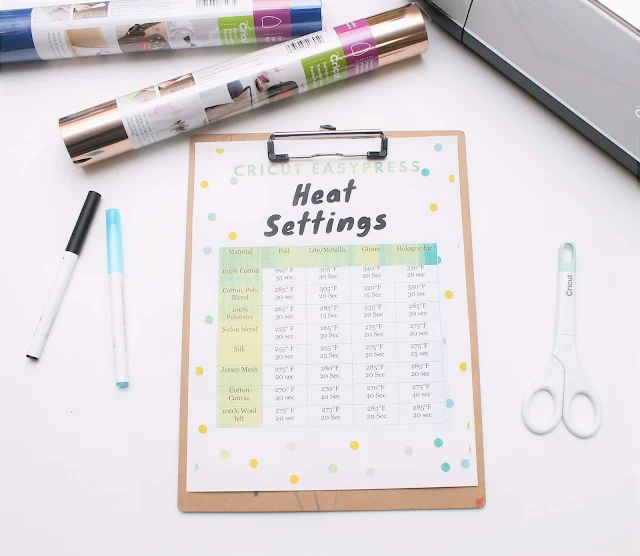 Cricut
Cricut
CRICUT EASYPRESS
Heat
Settings
Material Foil Lite/Metallic Glitter Holographic
100% Cotton 295° F 305° F 340° F 330° F
35 sec 30 Sec 20 Sec 20 sec
Cotton/Poly 285° F 305° F 320° F 330° F
Blend 30 sec 20 Sec 15 Sec 30 sec
100% 265° F 285° F 235° F 285° F
Polyester 30 sec 15 Sec 20 Sec 30 sec
Nylon blend 255° F 265° F 275° F 275° F
30 sec 30 Sec 20 sec 20 sec
Silk 255° F 255° F 275° F 275° F
30 sec 25 Sec 30 sec 25 sec
Jersey Mesh 275° F 280° F 285° F 285° F
20 sec 20 Sec 20 Sec 20 sec
Cotton 270° F 270° F 270° F 270° F
Canvas 40 sec 40 Sec 40 Sec 40 sec
100% Wool 275° F 275° F 285° F 285° F
felt 20 sec 20 Sec 20 Sec 20 sec
Cricut